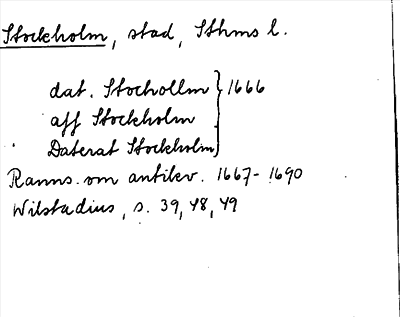 Stockholm, stad, Sthms l.
dat. Stochollm } 1666
aff Stockholm
Daterat Stockholm
Ranns. om antikv. 1667-1690
Wilstadius, s. 39, 48, 49